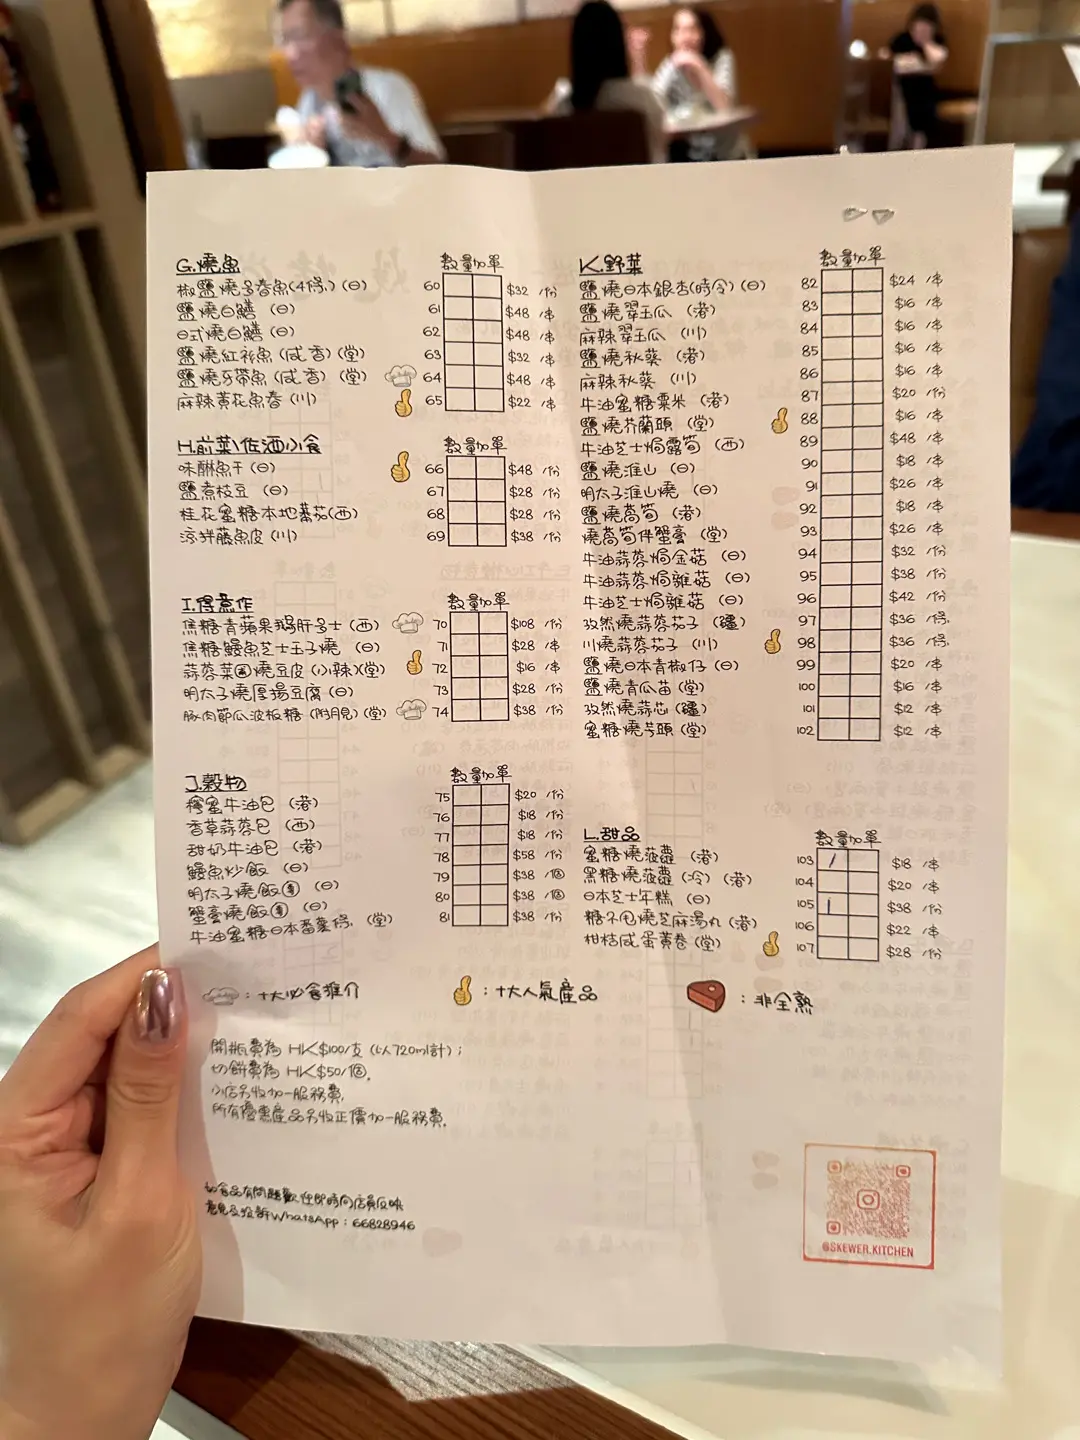 G.燒魚 數量加單
椒鹽燒多春魚(4條) (日) 60 $32 /份
鹽燒白鱔 (日) 61 $48 /串
日式燒白鱔 (日) 62 $48 /串
鹽燒紅衫魚 (咸香) (堂) 63 $32 /串
鹽燒牙帶魚 (咸香) (堂) 64 $48 /串
麻辣黃花魚春 (川) 65 $22 /串
H.前菜\佐酒小食 數量加單
味醂魚干 (日) 66 $48 /份
鹽煮枝豆 (日) 67 $28 /份
桂花蜜糖本地蕃茄(西) 68 $28 /份
涼拌藤魚皮 (川) 69 $38 /份
I.得意作 數量加單
焦糖青蘋果鵝肝多士 (西) 70 $108 /份
焦糖鰻魚芝士玉子燒 (日) 71 $28 /串
蒜蓉菜圃燒豆皮 (小辣)(堂) 72 $16 /串
明太子燒厚揚豆腐 (日) 73 $28 /份
豚肉節瓜波板糖 (附月見) (堂) 74 $38 /份
J.穀物 數量加單
檸蜜牛油包 (港) 75 $20 /份
香草蒜蓉包 (西) 76 $18 /份
甜奶牛油包 (港) 77 $18 /份
鰻魚炒飯 (日) 78 $58 /份
明太子燒飯團 (日) 79 $38 /個
蟹膏燒飯團 (日) 80 $38 /個
牛油蜜糖日本番薯條 (堂) 81 $38 /份
K.野菜 數量加單
鹽燒日本銀杏(時令) (日) 82 $24 /串
鹽燒翠玉瓜 (港) 83 $16 /串
麻辣翠玉瓜 (川) 84 $16 /串
鹽燒秋葵 (港) 85 $16 /串
麻辣秋葵 (川) 86 $16 /串
牛油蜜糖粟米 (港) 87 $20 /份
鹽燒芥蘭頭 (堂) 88 $16 /串
牛油芝士焗露筍 (西) 89 $48 /串
鹽燒淮山 (日) 90 $18 /串
明太子淮山燒 (日) 91 $26 /串
鹽燒萵筍 (港) 92 $18 /串
燒萵筍伴蟹膏 (堂) 93 $26 /串
牛油蒜蓉焗金菇 (日) 94 $32 /份
牛油蒜蓉焗雜菇 (日) 95 $38 /份
牛油芝士焗雜菇 (日) 96 $42 /份
孜然燒蒜蓉茄子 (疆) 97 $36 /條
川燒蒜蓉茄子 (川) 98 $36 /條
鹽燒日本青椒仔 (日) 99 $20 /串
鹽燒青瓜苗 (堂) 100 $16 /串
孜然燒蒜芯 (疆) 101 $12 /串
蜜糖燒芋頭 (堂) 102 $12 /串
L.甜品 數量加單
蜜糖燒菠蘿 (港) 103 / $18 /串
黑糖燒菠蘿 (冷) (港) 104 $20 /串
日本芝士年糕 (日) 105 | $38 /份
糖不甩燒芝麻湯丸 (港) 106 $22 /串
柑桔咸蛋黃卷 (堂) 107 $28 /份
: 十大必食推介 : 十大人氣產品 : 非全熟
開瓶費為 HK$100/支 (以720ml計) ;
切餅費為 HK$50/個.
小店另收加一服務費.
所有優惠產品另收正價加一服務費.
如食品有問題歡迎即時向店員反映
意見及投訴WhatsApp : 66828946
@SKEWER.KITCHEN